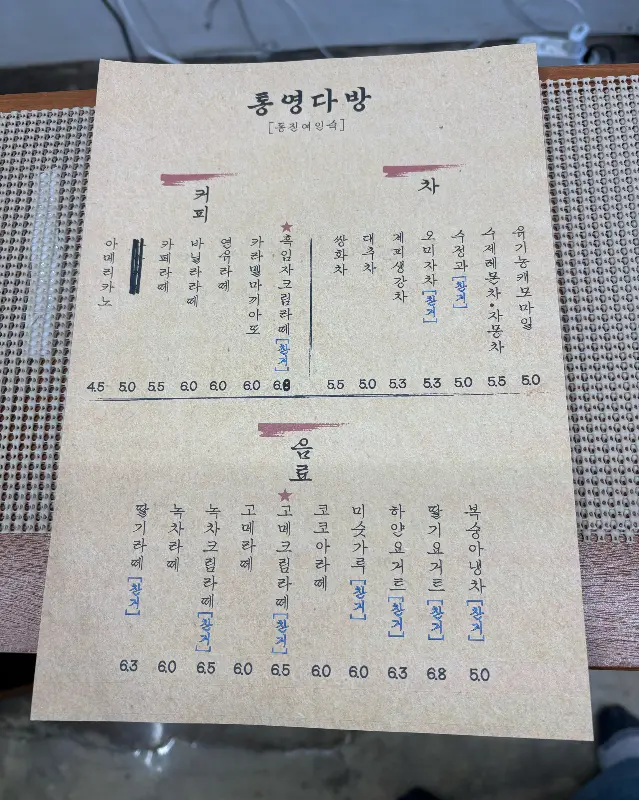 통영다방
[동진여인숙]
커피
아메리카노 4.5
5.0
카페라떼 5.5
바닐라라떼 6.0
연유라떼 6.0
카라멜마끼아또 6.0
★흑임자크림라떼[찬거]
차
쌍화차 5.5
대추차 5.0
계피생강차 5.3
오미자차[찬거] 5.3
수정과[찬거] 5.0
수제레몬차·자몽차 5.5
유기농캐모마일 5.0
음료
딸기라떼[찬거] 6.3
녹차라떼 6.0
녹차크림라떼[찬거] 6.5
고메라떼 6.0
★고메크림라떼[찬거] 6.5
코코아라떼 6.0
미숫가루[찬거] 6.0
하얀요거트[찬거] 6.3
딸기요거트[찬거] 6.8
복숭아냉차[찬거] 5.0